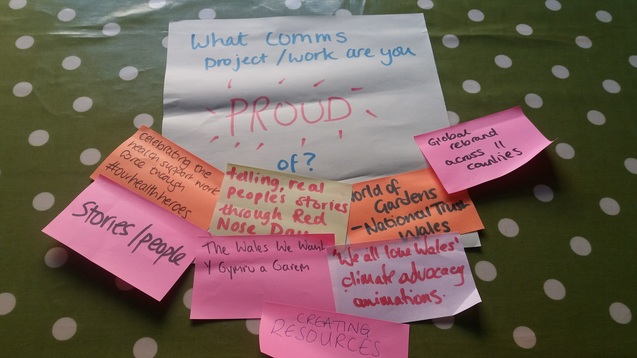 What Comms
project/work are you
PROUD
of?
Global
rebrand
across 11
countries
celebrating the
health support work
force through
#ourhealthheroes
telling real
people's stories
through Red
Nose Day
World of
Gardens
- National Trust
Wales
Stories/people
The Wales We Want
Y Gymru a Garem
'We all love Wales'
climate advocacy
animations.
CREATING
RESOURCES